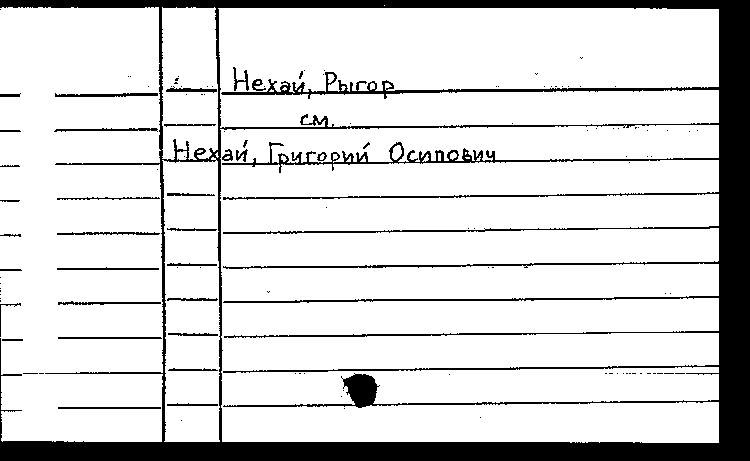 Нехай, Рыгор
см.
Нехай, Григорий Осипович